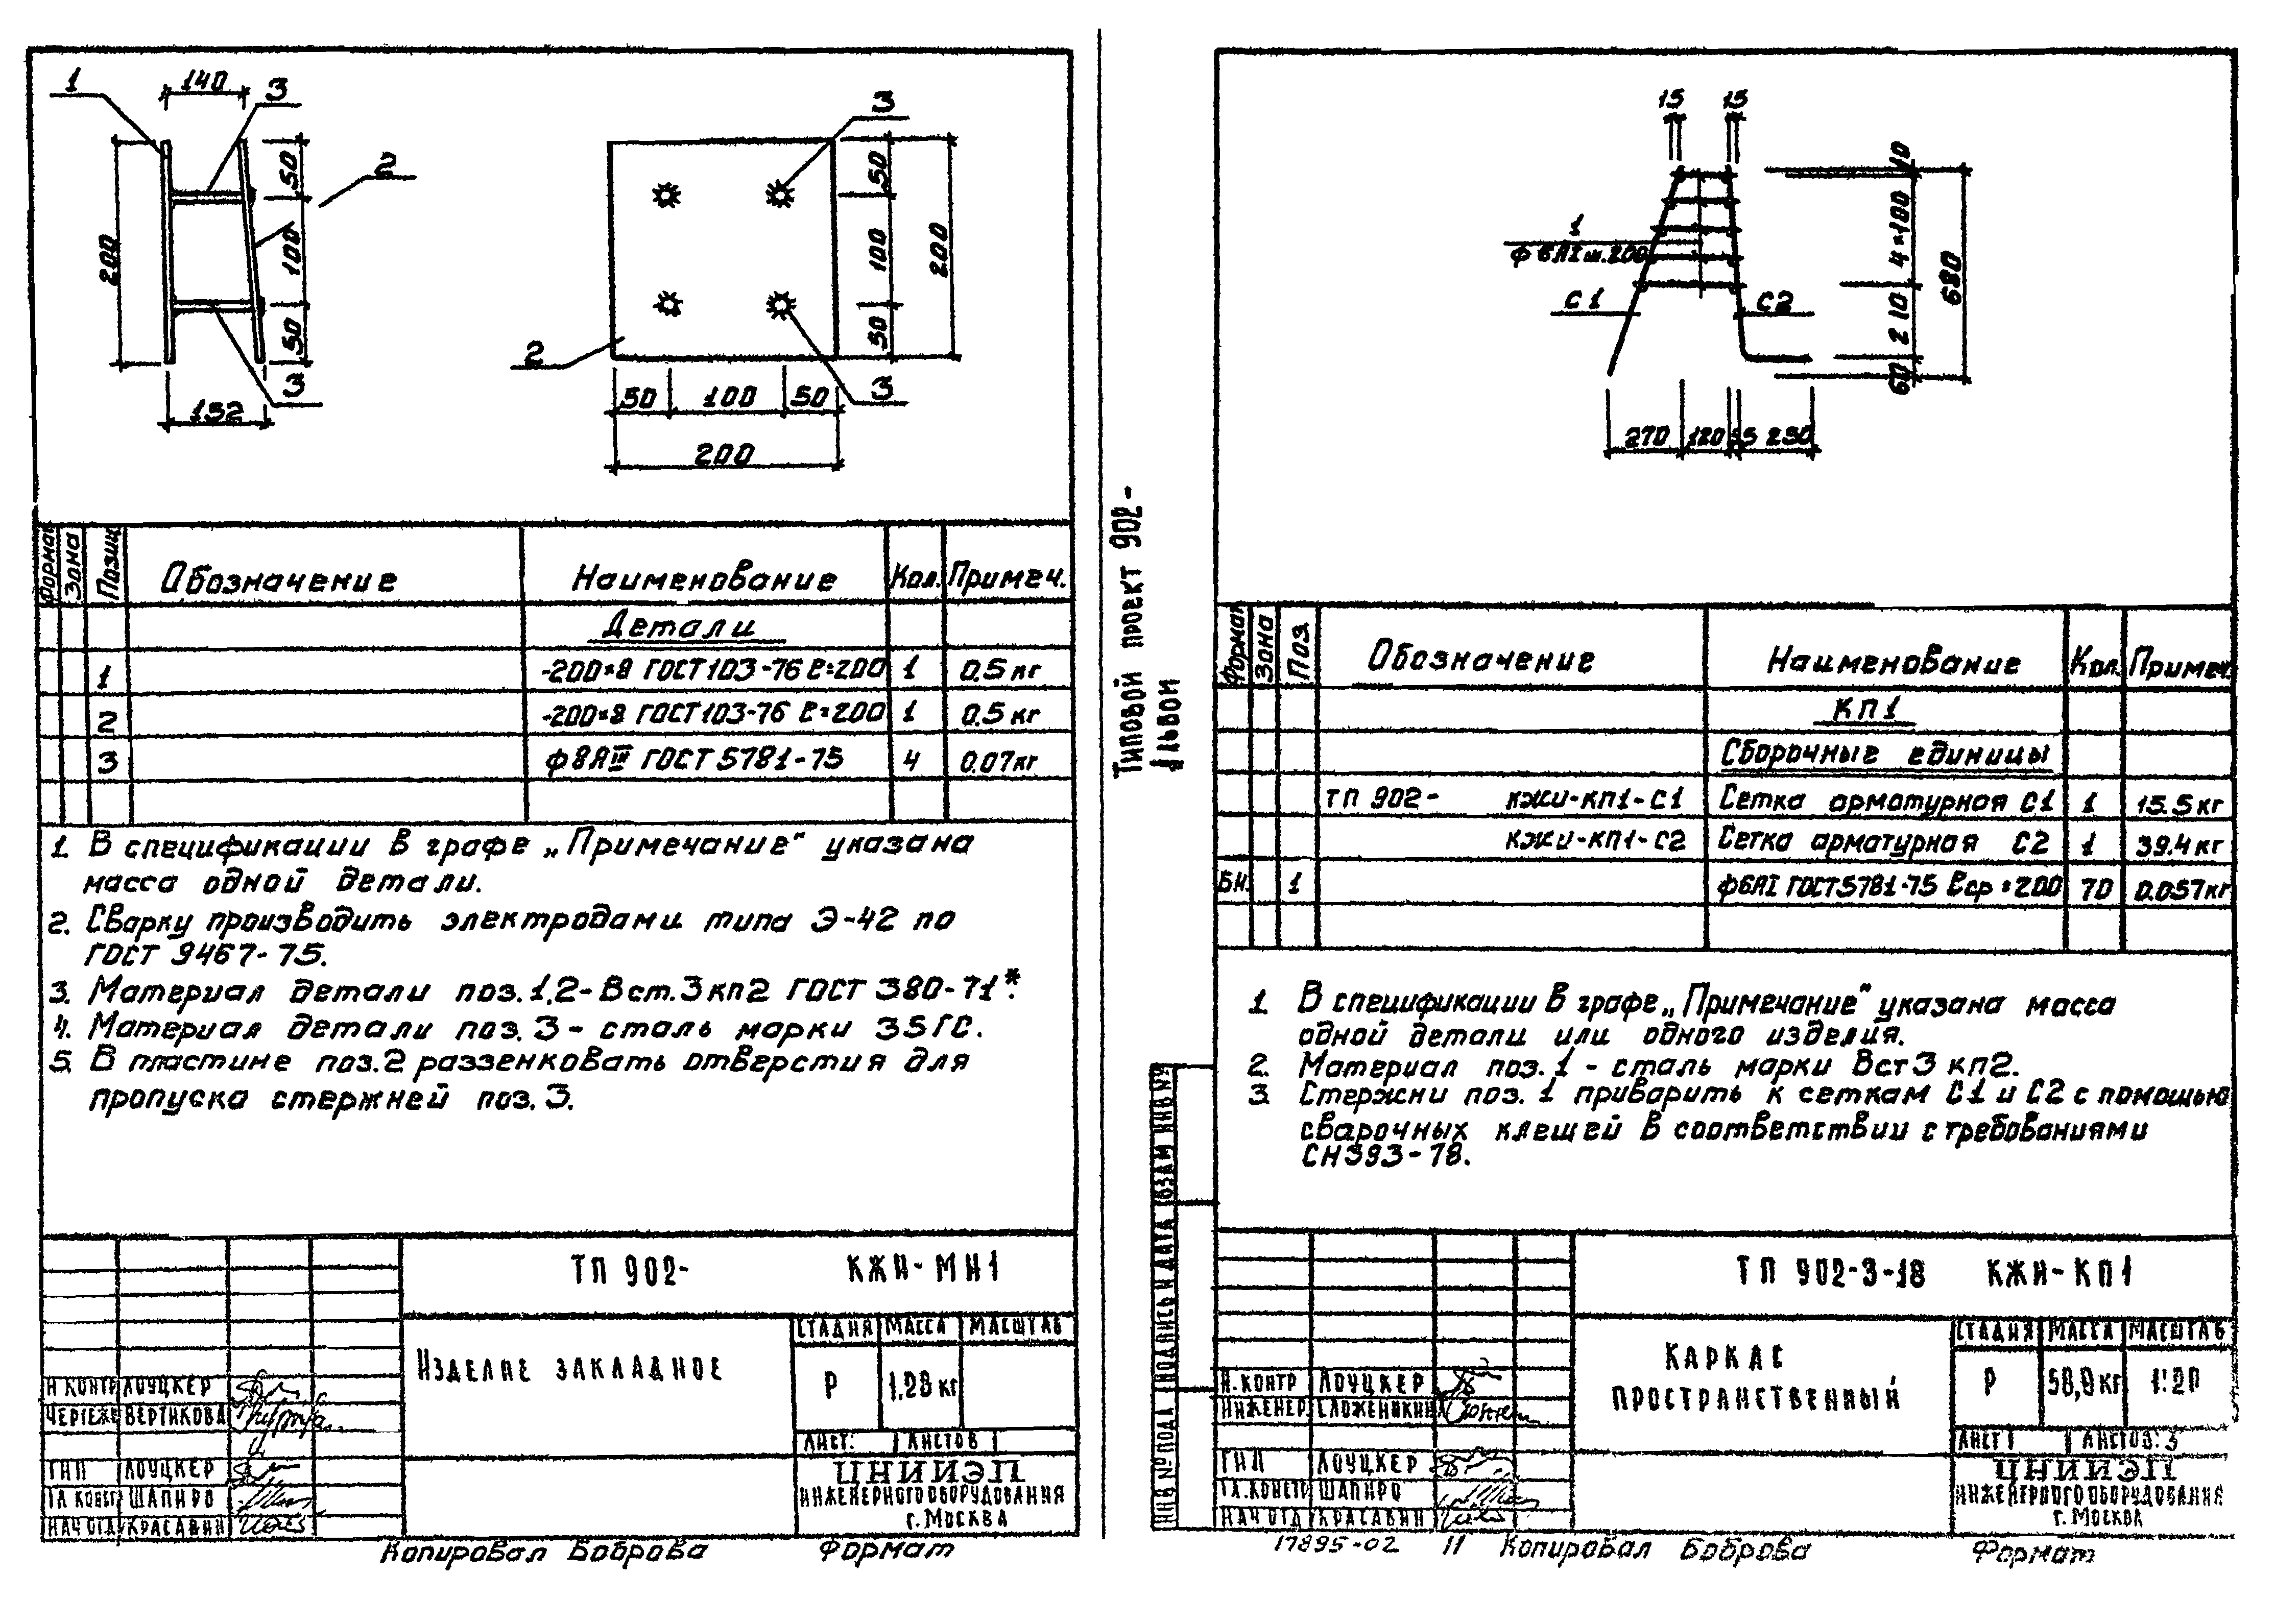 1
140
3
50
2
200
100
50
3
152
3
50
100
200
50
2
50
100
50
3
200
Формат Зона Позиц. Обозначение Наименование Кол. Примеч.
Детали
1 -200×8 ГОСТ 103-76 ℓ=200 1 0.5 кг
2 -200×8 ГОСТ 103-76 ℓ=200 1 0.5 кг
3 ф8АIII ГОСТ 5781-75 4 0.07кг
1. В спецификации в графе „Примечание" указана
масса одной детали.
2. Сварку производить электродами типа Э-42 по
ГОСТ 9467-75.
3. Материал детали поз. 1,2-Вст.3кп2 ГОСТ 380-71*.
4. Материал детали поз. 3 - сталь марки 35ГС.
5. В пластине поз.2 раззенковать отверстия для
пропуска стержней поз. 3.
ТП 902- КЖИ-МН1
Изделие закладное
Стадия Масса Масштаб
Р 1.28 кг
Лист: Листов 1
Н контр Лоуцкер
Чертеже Вертикова
ГИП Лоуцкер
Гл констр Шапиро
Нач отд Красавин
ЦНИИЭП
инженерного оборудования
г. Москва
Копировал Боброва Формат
Типовой проект 902-
Альбом
15 15
10
4×100
680
210
60
1
ф6АI ш.200
С1
С2
270 120 35 230
Формат Зона Поз. Обозначение Наименование Кол. Примеч.
КП1
Сборочные единицы
ТП 902- КЖИ-КП1-С1 Сетка арматурная С1 1 15.5 кг
КЖИ-КП1-С2 Сетка арматурная С2 1 39.4 кг
БН. 1 ф6АI ГОСТ5781-75 ℓср=200 70 0.057кг
1. В спецификации в графе „Примечание" указана масса
одной детали или одного изделия.
2. Материал поз. 1 - сталь марки Вст3 кп2.
3. Стержни поз. 1 приварить к сеткам С1 и С2 с помощью
сварочных клещей в соответствии с требованиями
СН393-78.
Инв № подл Подпись и дата Взам инв №
ТП 902-3-18 КЖИ-КП1
Каркас
пространственный
Стадия Масса Масштаб
Р 58,9кг 1:20
Лист 1 Листов: 3
Н. контр Лоуцкер
Инженер Сложеникин
ГИП Лоуцкер
Гл. констр Шапиро
Нач отд Красавин
ЦНИИЭП
инженерного оборудования
г. Москва
17895-02 11 Копировал Боброва Формат